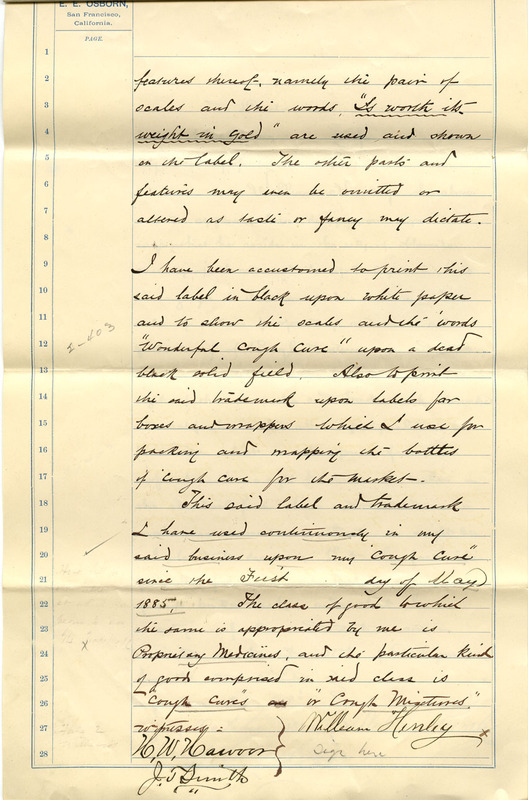 E. E. OSBORN,
San Francisco,
California.
PAGE
1
2 features thereof, namely the pair of
3 scales and the words, "Is worth its
4 weight in gold" are used and shown
5 on the label. The other parts and
6 features may even be omitted or
7 altered as taste or fancy may dictate.
8
9 I have been accustomed to print this
10 said label in black upon white paper
11 and to show the scales and the words
12 "Wonderful Cough Cure" upon a dead
13 black solid field. Also to print
14 the said trademark upon labels for
15 boxes and wrappers which I use for
16 packing and wrapping the bottles
17 of cough cure for the market.
18 This said label and trademark
19 I have used continuously in my
20 said business upon my "Cough Cure"
21 since the First day of May
22 1885. The class of good to which
23 the same is appropriated by me is
24 Proprietary Medicines, and the particular kind
25 of good comprised in said class is
26 "Cough Cures" or "or Cough Mixtures."
27 witnesses: William Henley x
28 H. W. Sign here
J. T. Smith
2-403
x